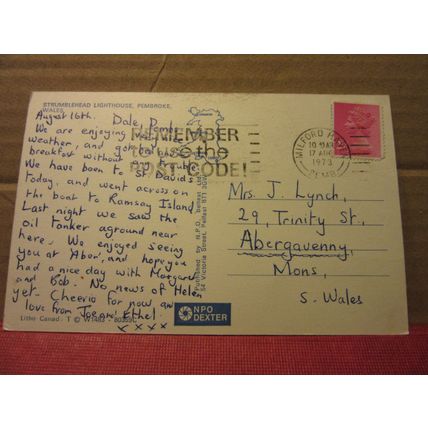 STRUMBLEHEAD LIGHTHOUSE, PEMBROKE,
WALES.
August 16th. Dale, Pembs.
We are enjoying
weather, and got our
breakfast without any trouble
We have been to St. David's
today, and went across on
the boat to Ramsay Island
Last night we saw the
oil tanker aground near
here. We enjoyed seeing
you at 'Abor', and hope you
had a nice day with Margaret
and Bob. No news of Helen
yet. Cheerio for now and
love from Joe and Ethel.
x x x x
Litho Canad. T © W1483
REMEMBER
to use the
POST CODE!
MILFORD HAVEN
17 AUG
1973
PEMB
Published by N.P.O.
54 Victoria Street, Belfast BT1
NPO
DEXTER
Mrs. J. Lynch,
29, Trinity St,
Abergavenny,
Mons,
S. Wales